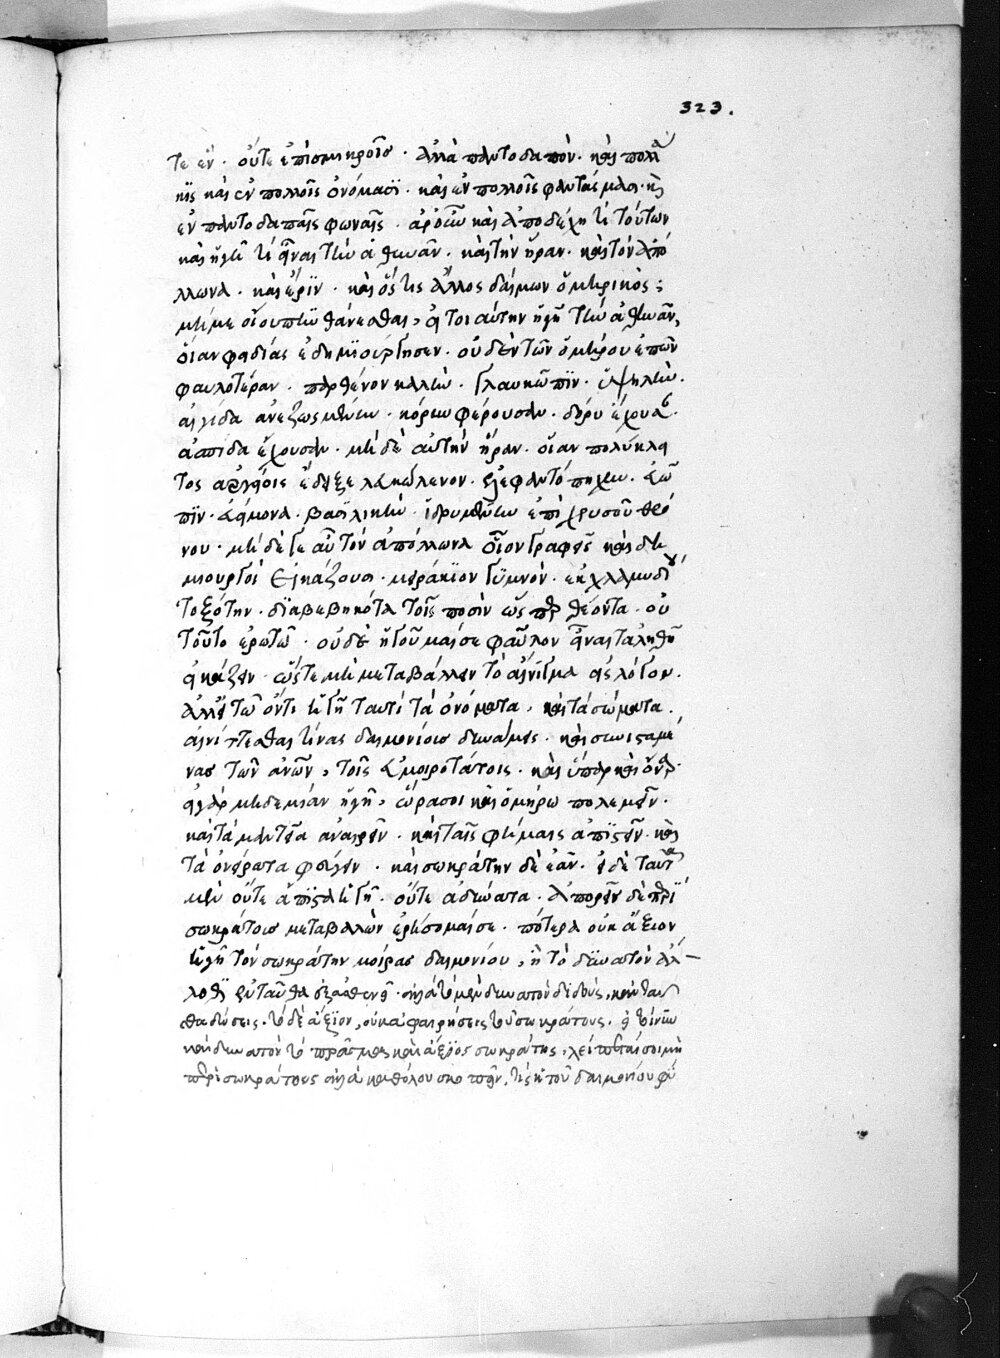 323.
τε ἓν · οὔτε ἐπὶ σμικροῖς · ἀλλὰ παντοδαπὸν · καὶ πολλά
κις καὶ ἐν πολλοῖς ὀνόμασι · καὶ ἐν πολλοῖς φαντάσμασι · καὶ
ἐν παντοδαπαῖς φωναῖς · ἆρ' οὖν καὶ ἀποδέχῃ τι τούτων
καὶ ἡγῇ τι εἶναι τὴν ἀθηνᾶν · καὶ τὴν ἥραν · καὶ τὸν ἀπό
λλωνα · καὶ ἔριν · καὶ ὅστις ἄλλος δαίμων ὁμηρικὸς ;
μή με οἴου πυνθάνεσθαι, εἰ τοιαύτην ἡγῇ τὴν ἀθηνᾶν,
οἵαν φειδίας ἐδημιούργησεν · οὐδὲν τῶν ὁμήρου ἐπῶν
φαυλοτέραν · παρθένον καλὴν · γλαυκῶπιν · ὑψηλὴν ·
αἰγίδα ἀνεζωσμένην · κόρυν φέρουσαν · δόρυ ἔχουσαν ·
ἀσπίδα ἔχουσαν · μὴ δὲ αὐτὴν ἥραν · οἵαν πολύκλει
τος ἀργείοις ἔδειξε λευκώλενον · ἐλεφαντόπηχυν · εὐῶ
πιν · εὐείμονα · βασιλικὴν · ἱδρυμένην ἐπὶ χρυσοῦ θρό
νου · μὴ δέ γε αὖ τὸν ἀπόλλωνα οἷον γραφεῖς καὶ δη
μιουργοὶ εἰκάζουσι · μειράκιον γυμνὸν · ἐκ χλαμυδίου
τοξότην · διαβεβηκότα τοῖς ποσὶν ὥσπερ θέοντα · οὐ
τοῦτο ἐρωτῶ · οὐδὲ ἡγοῦμαί σε φαῦλον εἶναι τἀληθῆ
εἰκάζειν · ὥστε μὴ μεταβάλλειν τὸ αἴνιγμα εἰς λόγον ·
ἀλλ' εἰ τῷ ὄντι ἡγῇ ταυτὶ τὰ ὀνόματα · καὶ τὰ σώματα ·
αἰνίττεσθαί τινας δαιμονίους δυνάμεις · καὶ συνισταμέ
νας τῶν ἀνῶν, τοῖς εὐμοιροτάτοις · καὶ ὕπαρ καὶ ὄναρ ·
εἰ γὰρ μηδεμίαν ἡγῇ, ὥρα σοι καὶ ὁμήρῳ πολεμεῖν ·
καὶ τὰ μαντεῖα ἀναιρεῖν · καὶ ταῖς φήμαις ἀπιστεῖν · καὶ
τὰ ὀνείρατα φεύγειν · καὶ σωκράτην δὲ ἐᾶν · εἰ δὲ ταῦτα
μὲν οὔτε ἄπιστα ἡγῇ · οὔτε ἀδύνατα · ἀπορεῖν δὲ περὶ
σωκράτους μεταβαλὼν ἐρήσομαί σε · πότερα οὐκ ἄξιον
ἡγῇ τὸν σωκράτην μοίρας δαιμονίου, ἢ τὸ δυνατὸν ἀλ-
λοθι ἐνταῦθα ἐξασθενεῖ · ἀλλὰ τὸ μὲν δυνατὸν διδοὺς, κἀνταῦ
θα δώσεις · τὸ δὲ ἄξιον, οὐκ ἀφαιρήσεις τοῦ σωκράτους · εἰ τοίνυν
καὶ δυνατὸν τὸ πρᾶγμα καὶ ἄξιος σωκράτης, λείπεταί σοι μὴ
περὶ σωκράτους ἀλλὰ καθόλου σκοπεῖν, τίς ἡ τοῦ δαιμονίου φύ